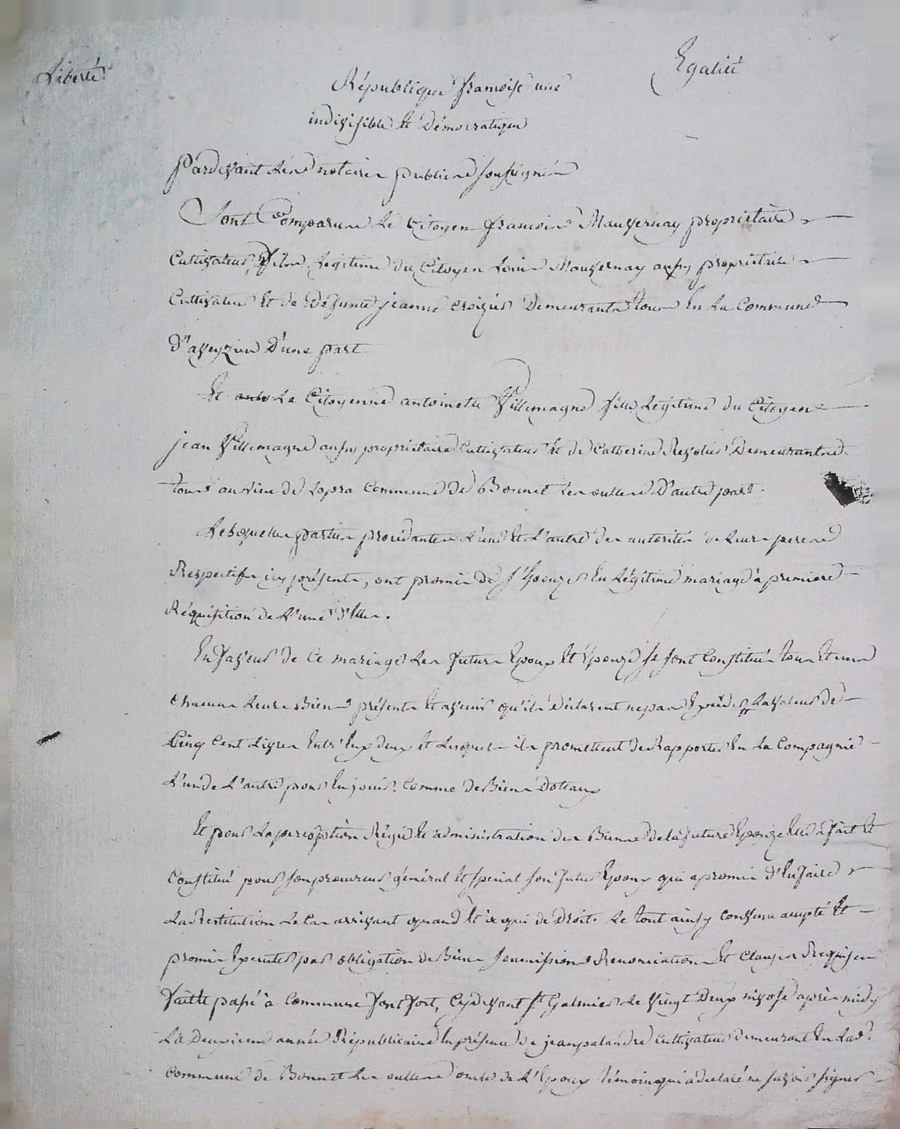 Liberté
Egalité
République francoise une
indivisible et Démocratique
Pardevant Les notaires publics soussignés
Sont Comparus Le Citoyen francois Mauvernay propriétaire
Cultivateur, fils Légitime du Citoyen Louis Mauvernay aussy propriétaire
Cultivateur Et de Défunte jeanne Demeurants tous En La Commune
D'aveyzieu D'une part
Et La Citoyenne antoinette Villemagne fille Légitime du Citoyen
jean Villemagne aussy propriétaire Cultivateur Et de Catherine Demeurants
tous au Lieu de Lapra Commune de Bonnet Les oulles D'autre part.
Lesquelles parties procédantes L'une Et L'autre des autorités de Leurs peres
Respectifs icy présents, ont promis de s'Epouzer En Légitime mariage à première
Réquisition de L'une D'Elles.
En faveur de Ce mariage Les futurs Epoux Et Epouze se sont Constitués tous Et uns
chacuns Leurs Biens présents Et avenir qu'ils Déclarent ne pas Exceder La valeur de
Cinq Cent Livres Entr'Eux deux et Lesquels ils promettent de Rapporter En La Compagnie
L'un de L'autre pour En jouir Comme de Biens Dotaux
Et pour La perception Régie Et administration des Biens de la future Epouze Elle a fait Et
Constitué pour son procureur général Et spécial son futur Epoux qui a promis d'En faire
La Restitution Le Cas arrivant quand Et à qui de Droit. Le tout ainsy convenu accepté Et
promis Executer par obligation de Biens soumissions Renonciations Et Clauses Requises
fait Et passé à Commune fontfort, Cydevant St Galmier Le vingt Deux nivose après midy
La Deuxieme année Républicaine En présence de jean palandre Cultivateur demeurant En Lad.
Commune de Bonnet Les oulles oncle de L'Epoux témoin qui a déclaré ne savoir signer